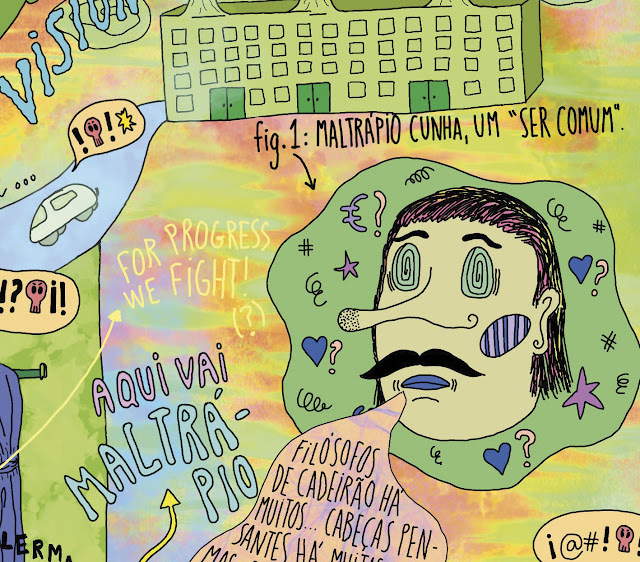 VISION
! !
fig. 1: MALTRÁPIO CUNHA, UM "SER COMUM".
...
€?
?
#
FOR PROGRESS
WE FIGHT!
(?)
!? ¡!
?
#
?
AQUI VAI
MALTRÁ-
PIO
FILÓSOFOS
DE CADEIRÃO HÁ
MUITOS... CABEÇAS PEN-
SANTES HÁ MUITAS
?
¡@#!
LERMA